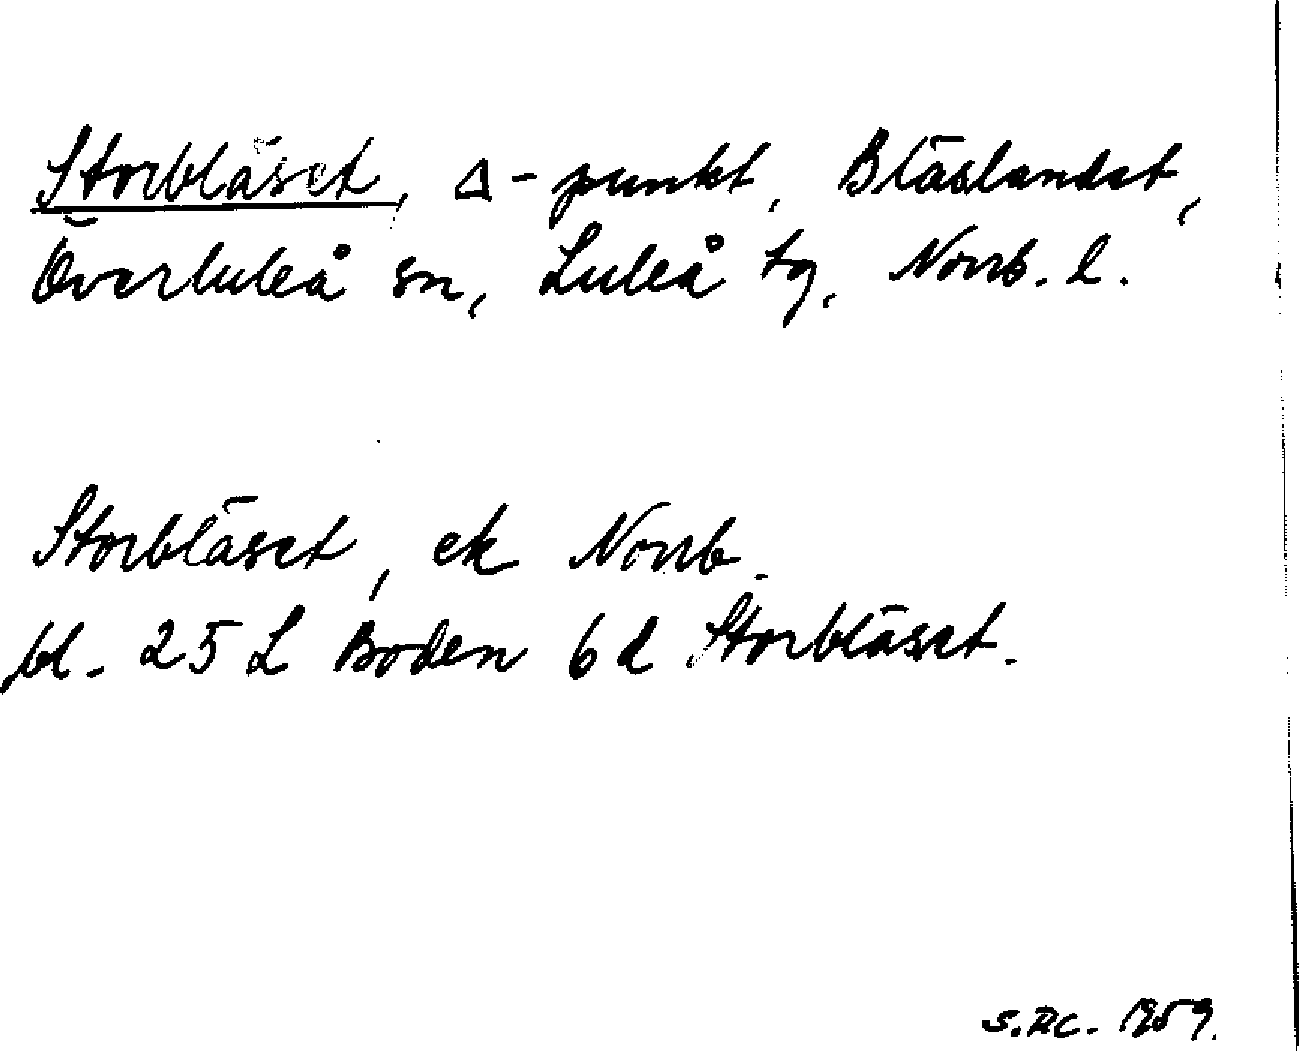 Storbläset, Δ-punkt, Bläslandet,
Överluleå sn, Luleå tg, Norrb. l.
Storbläset, ek Norrb.
bl. 25 L Boden 6d Storbläset.
S.RC. 1959.